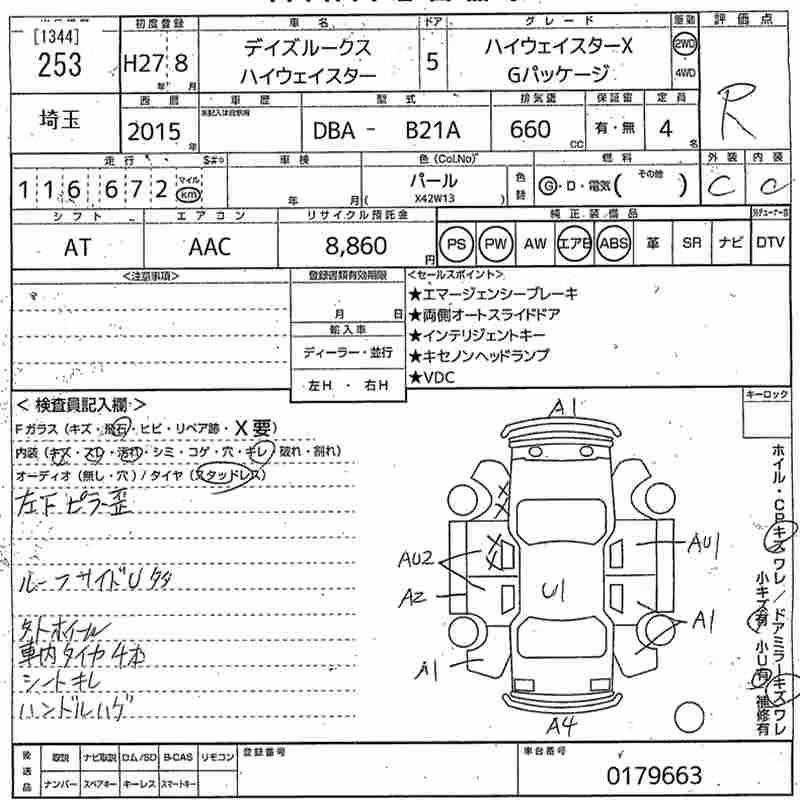 [1344]
253
初度登録
H27 8
年 月
車名
デイズルークス
ハイウェイスター
ドア
5
グレード
ハイウェイスターX
Gパッケージ
2WD
4WD
評価点
R
埼玉
西暦
2015
年
車歴
型式
DBA - B21A
排気量
660
CC
保証書
有・無
定員
4
名
走行
S#
116,672
マイル
km
車検
年 月
色(Col.No)
パール
( X42W13 )
色替
燃料
G・D・電気( その他 )
外装
C
内装
C
シフト
AT
エアコン
AAC
リサイクル預託金
8,860
円
純正装備品
PS PW AW エアB ABS 革 SR ナビ DTV
<注意事項>
登録書類有効期限
月 日
輸入車
ディーラー・並行
左H・右H
<セールスポイント>
★エマージェンシーブレーキ
★両側オートスライドドア
★インテリジェントキー
★キセノンヘッドランプ
★VDC
キーロック
<検査員記入欄>
Fガラス(キズ・飛石・ヒビ・リペア跡・X要)
内装(キズ・スレ・汚れ・シミ・コゲ・穴・キレ・破れ・割れ)
オーディオ(無し・穴)/タイヤ(スタッドレス)
左下ピラー歪
ルーフサイドU
外トホイール
車内タイヤ4本
シートキレ
ハンドルハゲ
A1
X
X
AU2
X
X
A2
U1
AU1
A1
A1
A4
ホイル・CPキズワレ/ドアミラーキズワレ
小キズ有 小U有 補修有
後送品
取説 ナビ取説 ロム/SD B-CAS リモコン
ナンバー スペアキー キーレス スマートキー
登録番号
車台番号
0179663